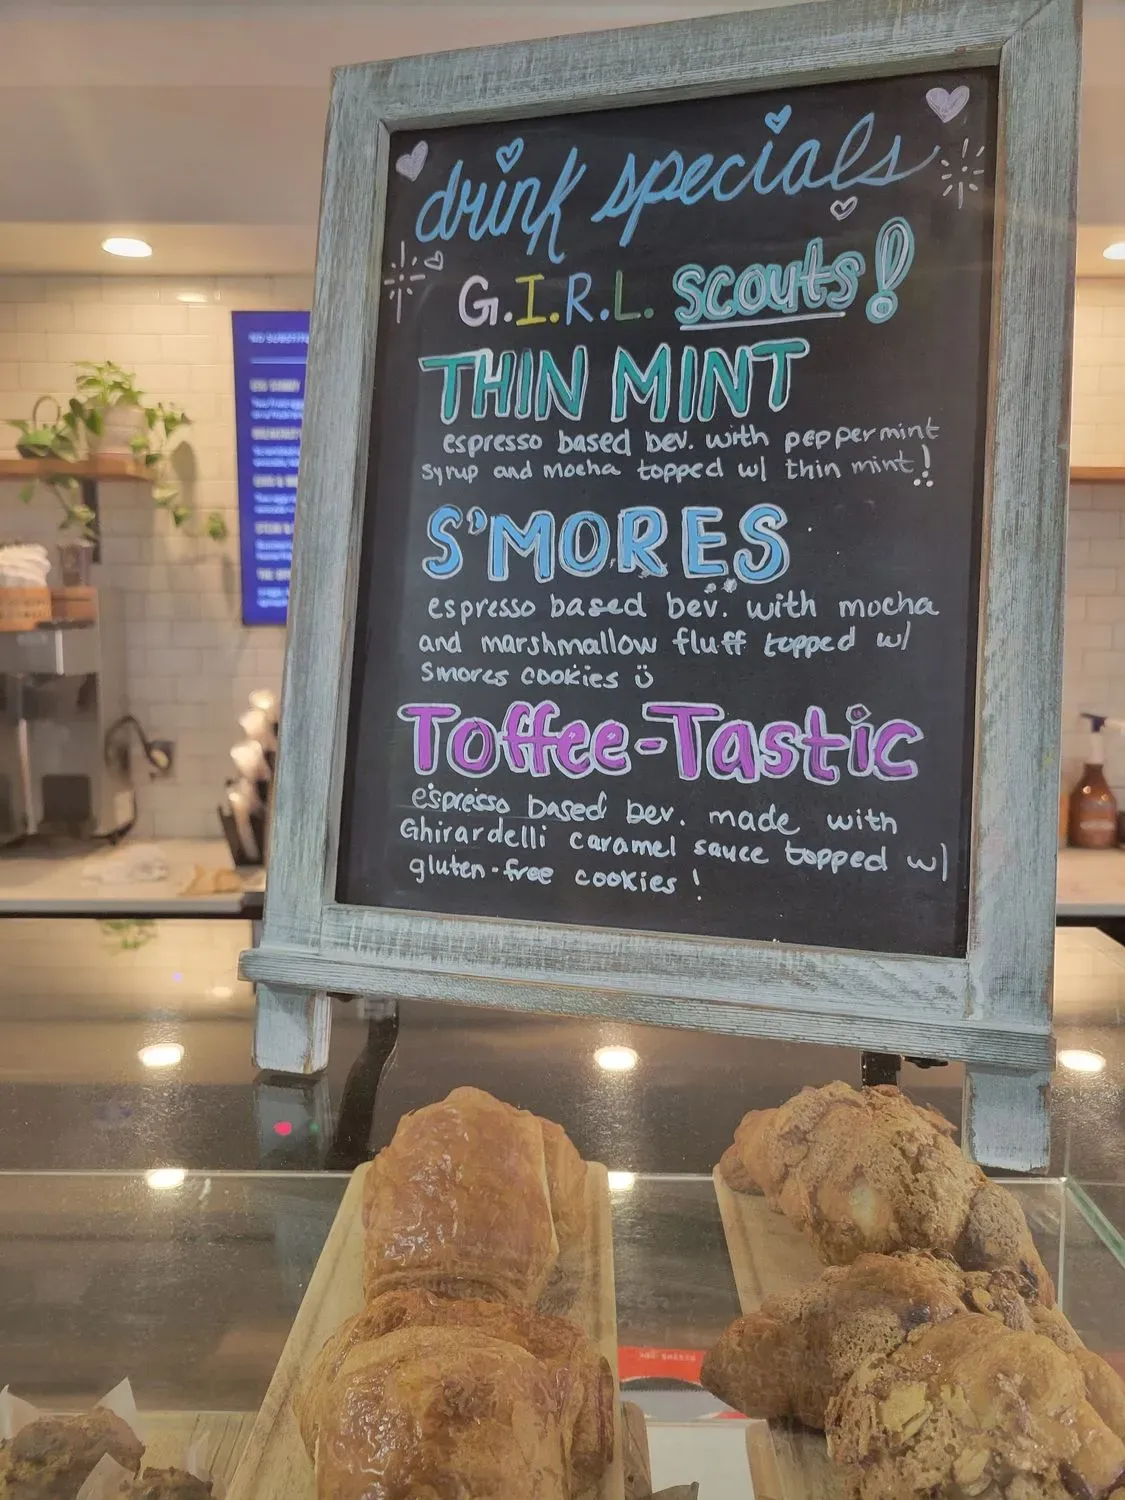 drink specials
G.I.R.L. scouts!
THIN MINT
espresso based bev. with peppermint
syrup and mocha topped w/ thin mint!
S'MORES
espresso based bev. with mocha
and marshmallow fluff topped w/
Smores cookies ü
Toffee-Tastic
espresso based bev. made with
Ghirardelli caramel sauce topped w/
gluten-free cookies!
NO SUBSTITU